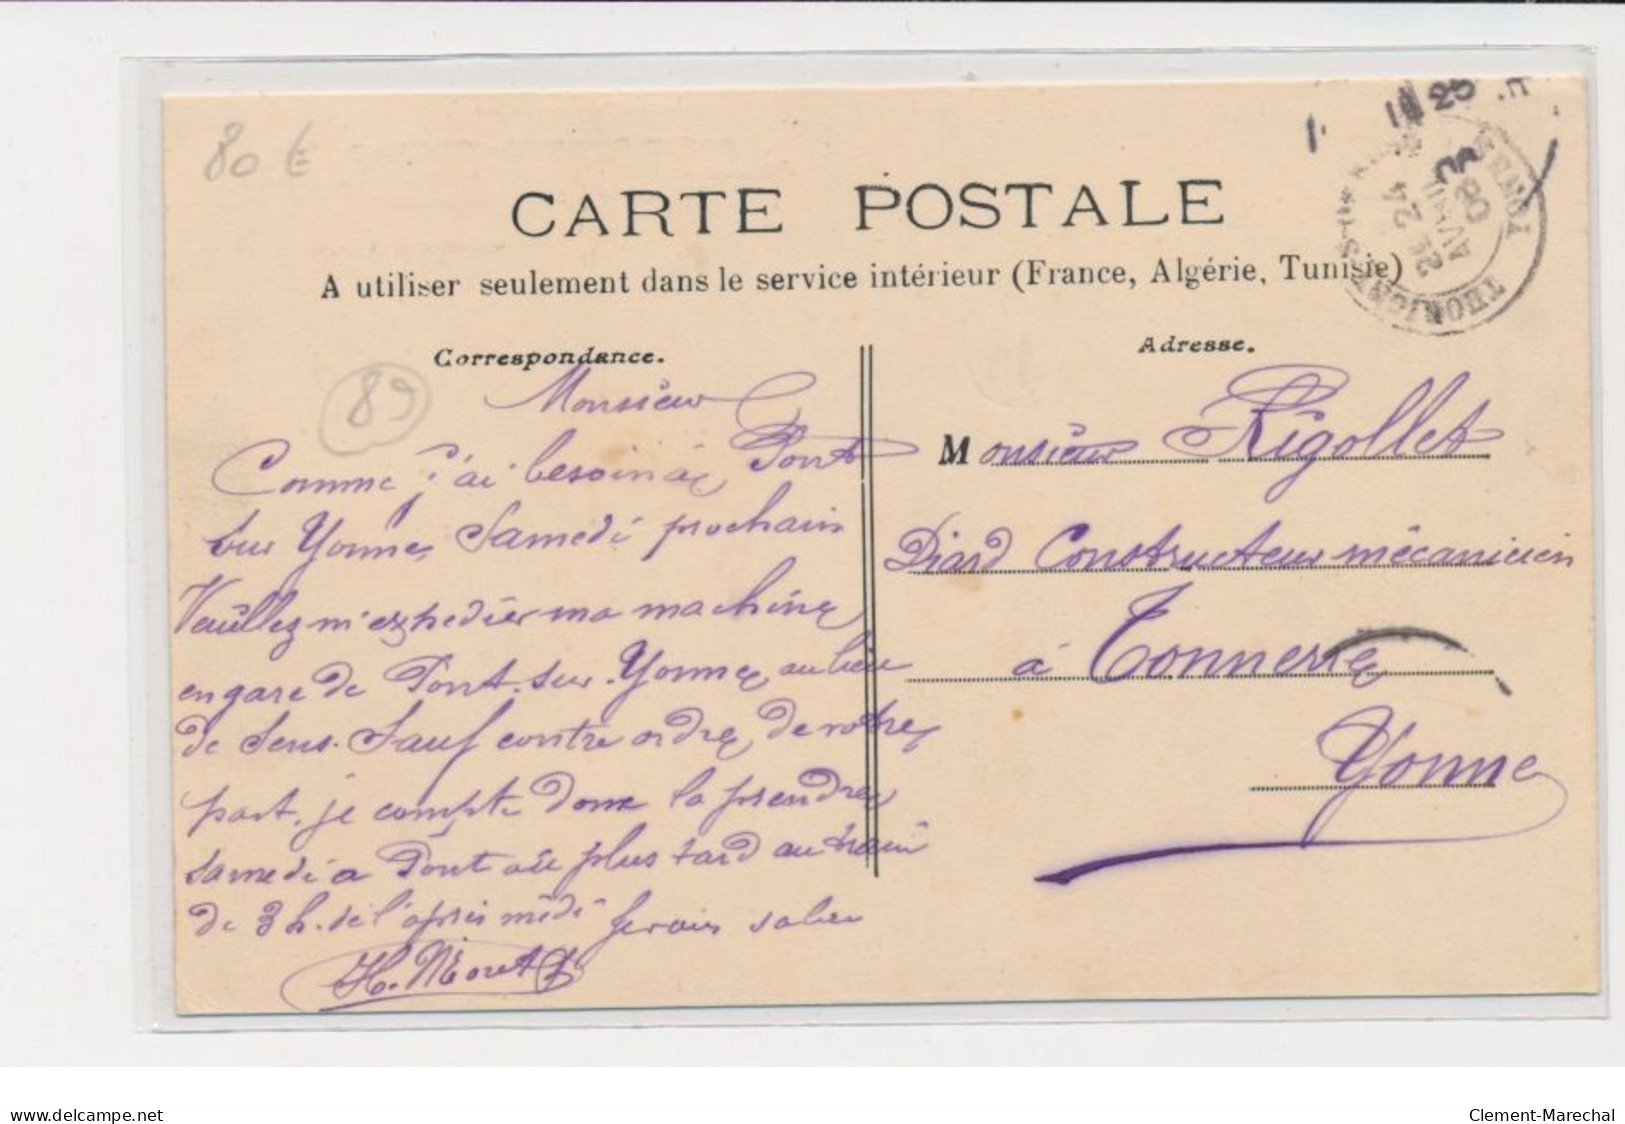 80 €
CARTE POSTALE
A utiliser seulement dans le service intérieur (France, Algérie, Tunisie)
THORIGNY-S-
2E 24
AVRIL
08
25
Correspondance.
89
Monsieur
Comme j'ai besoin à Pont
sur Yonne, Samedi prochain
Veuillez m'expedier ma machine
en gare de Pont-sur-Yonne au lieu
de Sens. Sauf contre ordre de votre
part, je compte donc la prendre
samedi à Pont au plus tard au train
de 3 h. de l'après midi
H. Moret
Adresse.
Monsieur Rigollet
Diard Constructeur mécanicien
à Tonnerre
Yonne
www.delcampe.net
Clement-Marechal